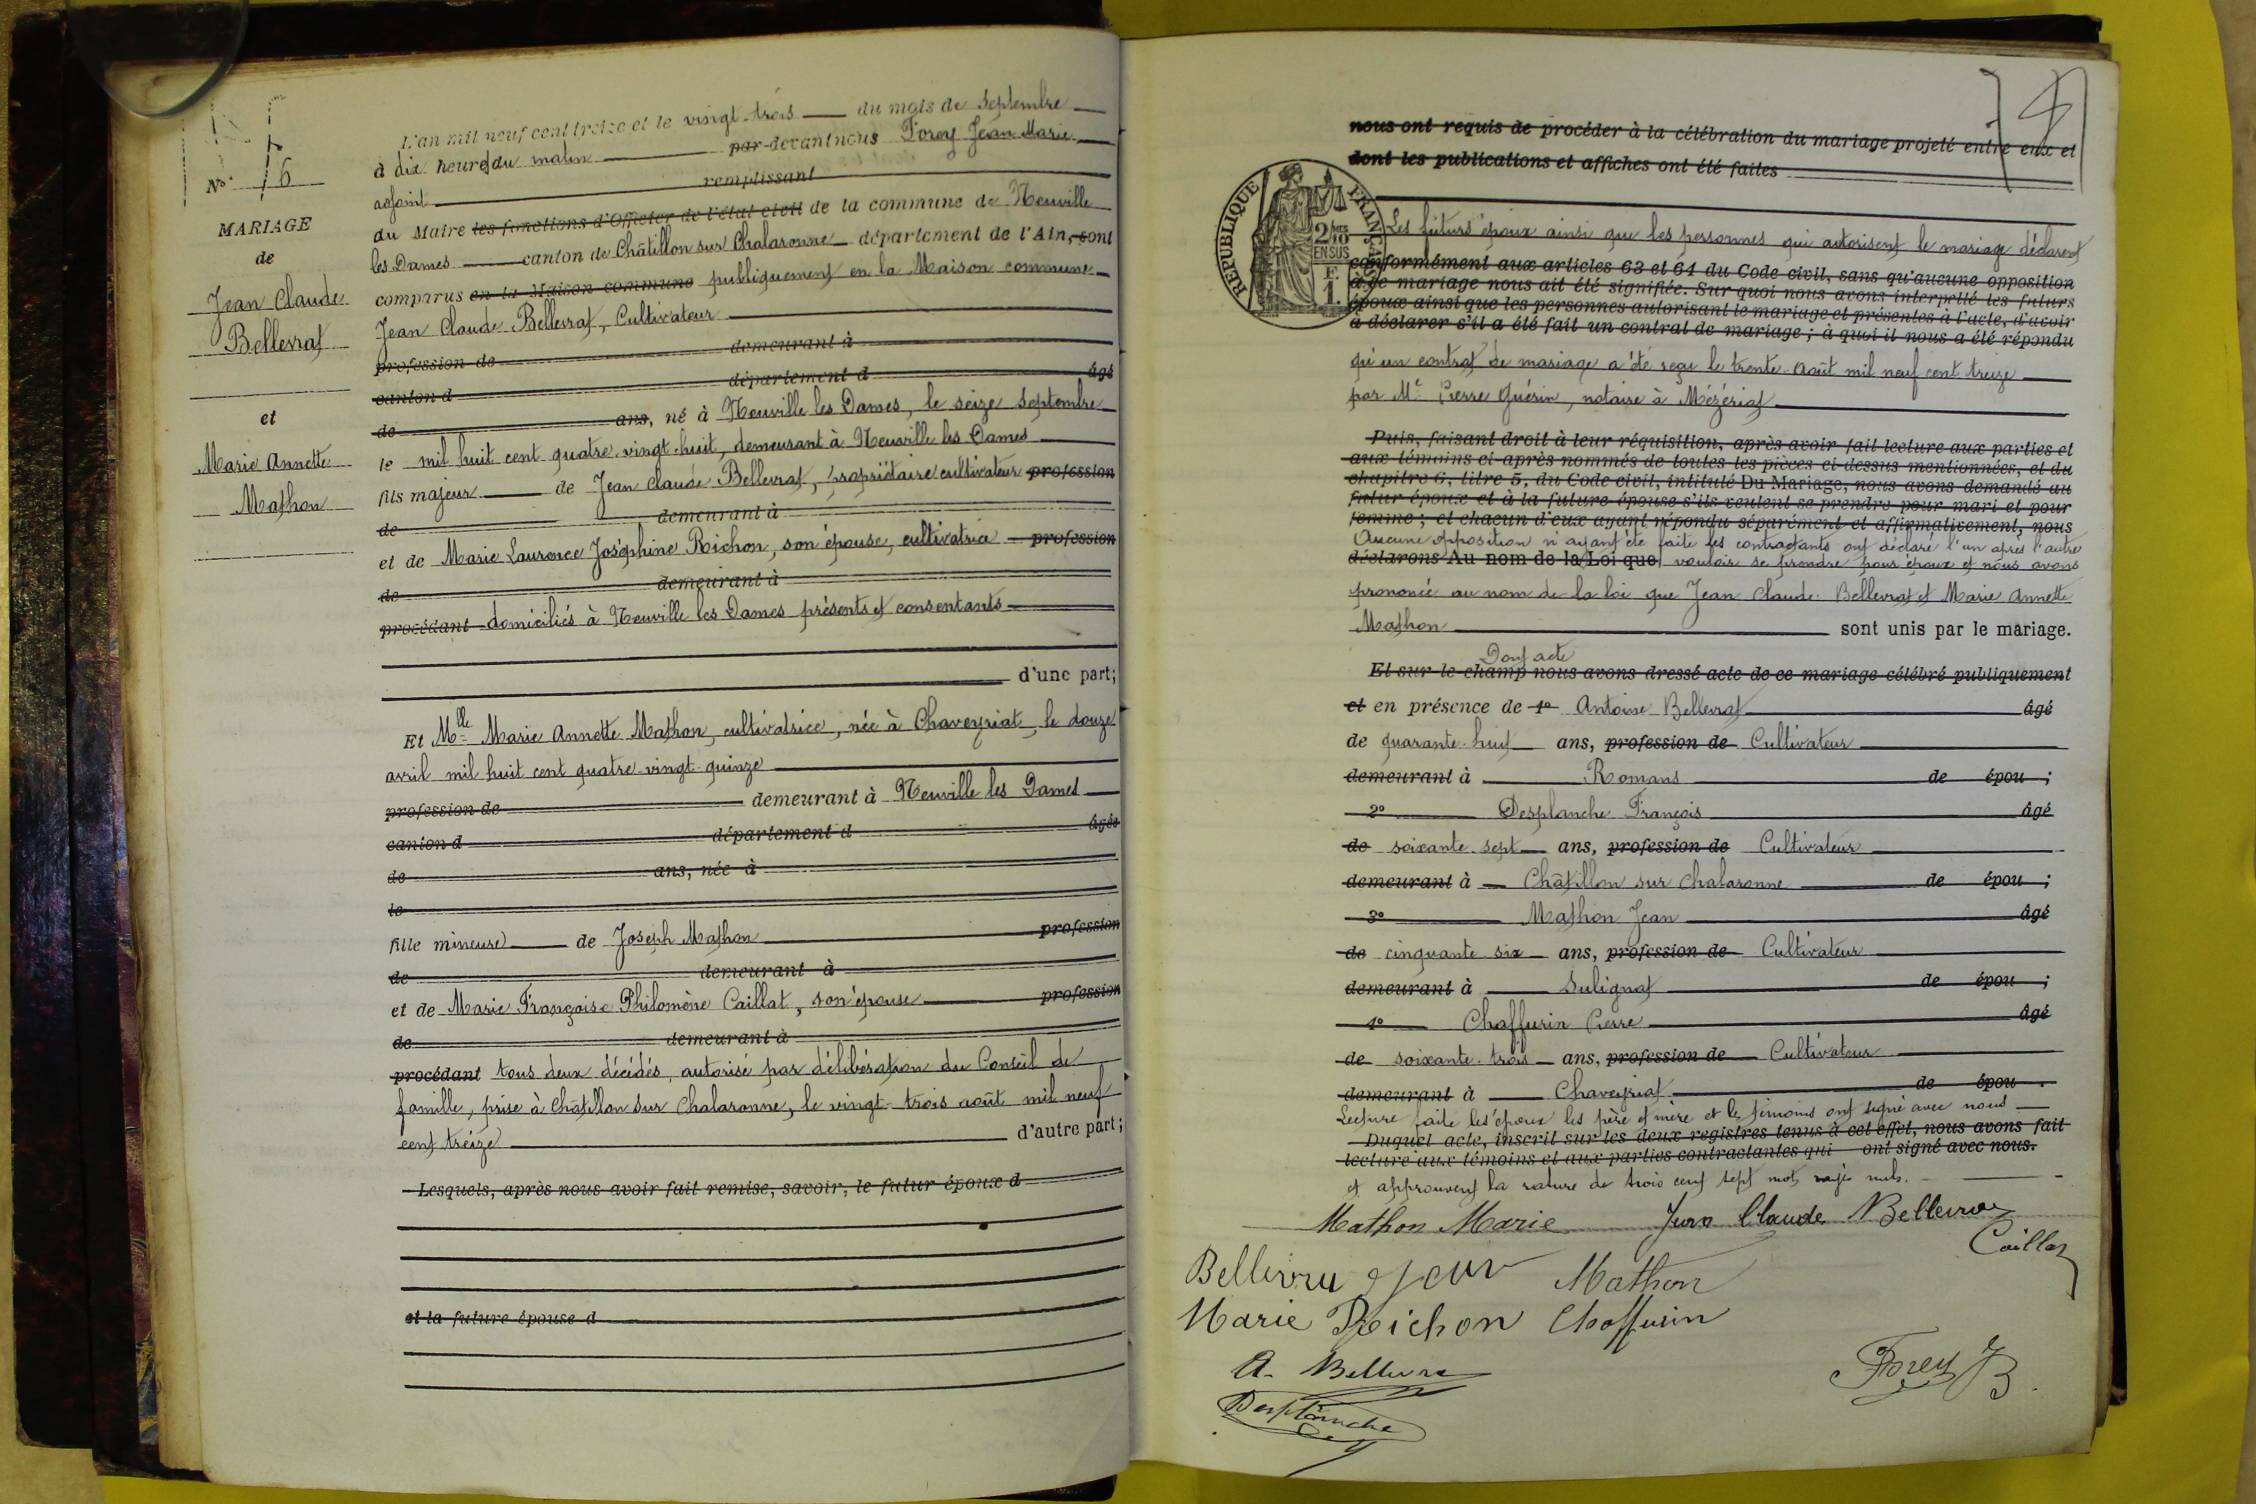 N° 6
MARIAGE
de
Jean Claude
Bellevrat
et
Marie Annette
Mathon
L'an mil neuf cent treize et le vingt-trois du mois de Septembre
à dix heures du matin par-devant nous Forey Jean Marie
adjoint remplissant
du Maire les fonctions d'Officier de l'état civil de la commune de Neuville
les Dames canton de Châtillon sur Chalaronne département de l'Ain, sont
comparus en la Maison commune publiquement en la Maison commune
Jean Claude Bellevrat, Cultivateur
profession de demeurant à
canton d département d âgé
de ans, né à Neuville les Dames, le seize Septembre
le mil huit cent quatre-vingt-huit, demeurant à Neuville les Dames
fils majeur de Jean Claude Bellevrat, propriétaire cultivateur profession
de demeurant à
et de Marie Laurence Joséphine Richon, son épouse, cultivatrice profession
de demeurant à
procédant domiciliés à Neuville les Dames présents et consentants
d'une part;
Et Mlle Marie Annette Mathon, cultivatrice, née à Chaveyriat, le douze
avril mil huit cent quatre-vingt-quinze
profession de demeurant à Neuville les Dames
canton d département d âgée
de ans, née à
le
fille mineure de Joseph Mathon profession
de demeurant à
et de Marie Françoise Philomène Caillat, son épouse profession
de demeurant à
procédant tous deux décédés, autorisé par délibération du Conseil de
famille, prise à Châtillon sur Chalaronne, le vingt-trois août mil neuf
cent treize d'autre part;
Lesquels, après nous avoir fait remise, savoir, le futur époux d
et la future épouse d
nous ont requis de procéder à la célébration du mariage projeté entre eux et
dont les publications et affiches ont été faites
RÉPUBLIQUE FRANÇAISE
2/10
EN SUS
F.
1.
Les futurs époux ainsi que les personnes qui autorisent le mariage déclarent
conformément aux articles 63 et 64 du Code civil, sans qu'aucune opposition
à ce mariage nous ait été signifiée. Sur quoi nous avons interpellé les futurs
époux ainsi que les personnes autorisant le mariage et présentes à l'acte, d'avoir
à déclarer s'il a été fait un contrat de mariage; à quoi il nous a été répondu
qu'un contrat de mariage a été reçu le trente Août mil neuf cent treize
par Me Pierre Guérin, notaire à Mézériat
Puis, faisant droit à leur réquisition, après avoir fait lecture aux parties et
aux témoins ci-après nommés de toutes les pièces ci-dessus mentionnées, et du
chapitre 6, titre 5, du Code civil, intitulé Du Mariage, nous avons demandé au
futur époux et à la future épouse s'ils veulent se prendre pour mari et pour
femme; et chacun d'eux ayant répondu séparément et affirmativement, nous
Aucune opposition n'ayant été faite les contractants ont déclaré l'un après l'autre
déclarons Au nom de la Loi que vouloir se prendre pour époux et nous avons
prononcé au nom de la loi que Jean Claude Bellevrat et Marie Annette
Mathon sont unis par le mariage.
Dont acte
Et sur-le-champ nous avons dressé acte de ce mariage célébré publiquement
et en présence de 1o Antoine Bellevrat âgé
de quarante-huit ans, profession de Cultivateur
demeurant à Romans de épou ;
2o Desplanche François âgé
de soixante-sept ans, profession de Cultivateur
demeurant à Châtillon sur Chalaronne de épou ;
3o Mathon Jean âgé
de cinquante six ans, profession de Cultivateur
demeurant à Sulignat de épou ;
4o Chaffurin Pierre âgé
de soixante-trois ans, profession de Cultivateur
demeurant à Chaveyriat de épou .
Lecture faite les époux les père et mère et les témoins ont signé avec nous
Duquel acte, inscrit sur les deux registres tenus à cet effet, nous avons fait
lecture aux témoins et aux parties contractantes qui ont signé avec nous.
et approuvent la rature de trois cent sept mots rayés nuls.
Mathon Marie Jean Claude Bellevrat
Caillat
Mathon
Marie Richon Chaffurin
A. Bellevra
Forey JB
Desplanche